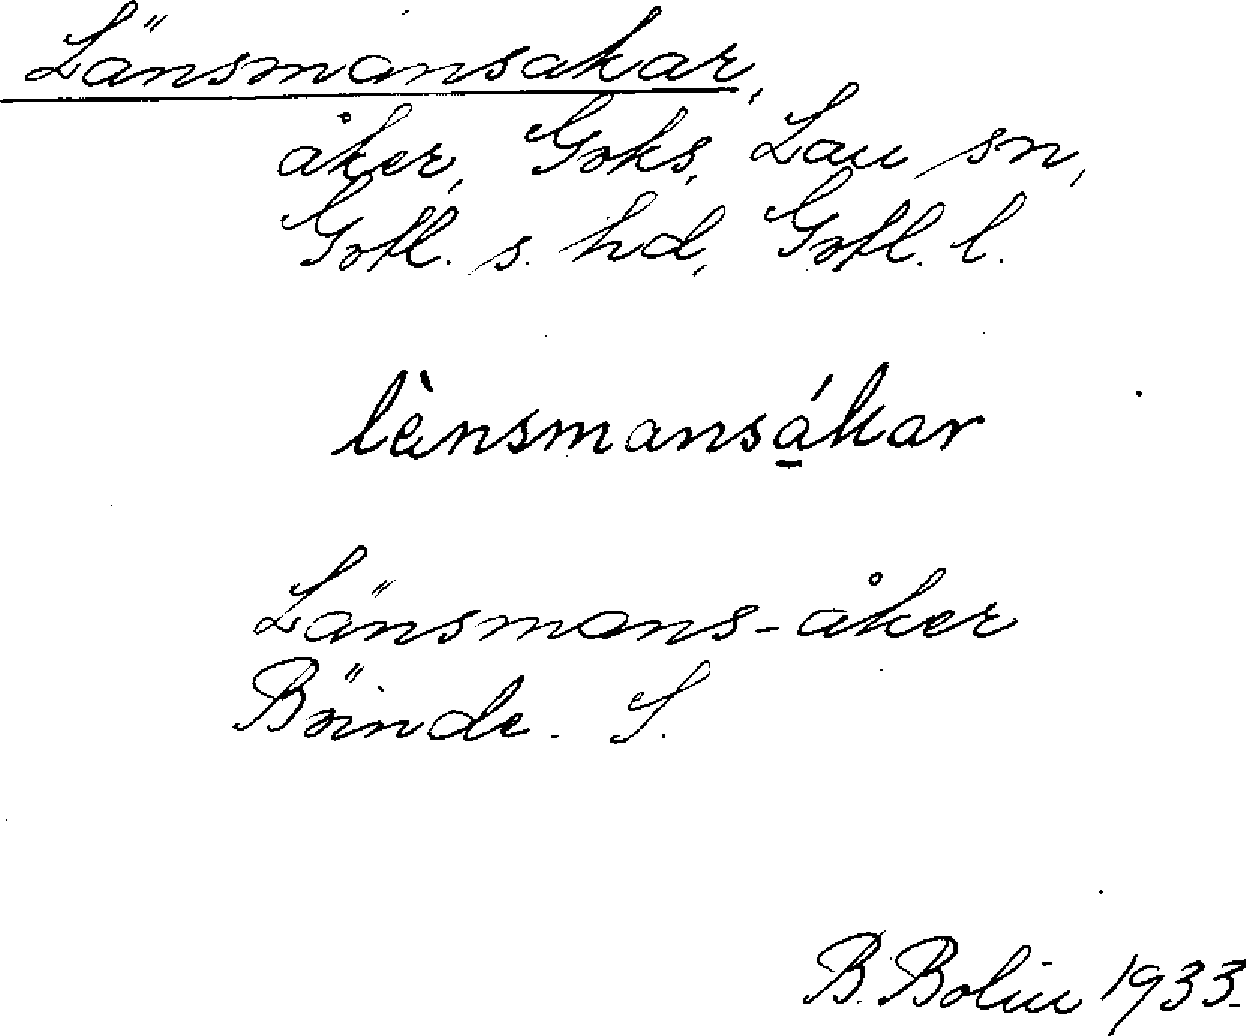 Länsmansakar,
åker, Goks, Lau sn,
Gotl. s. hd, Gotl. l.
lènsmansá̱kar
Länsmans-åker
Böinde. S.
B. Bolin 1933.